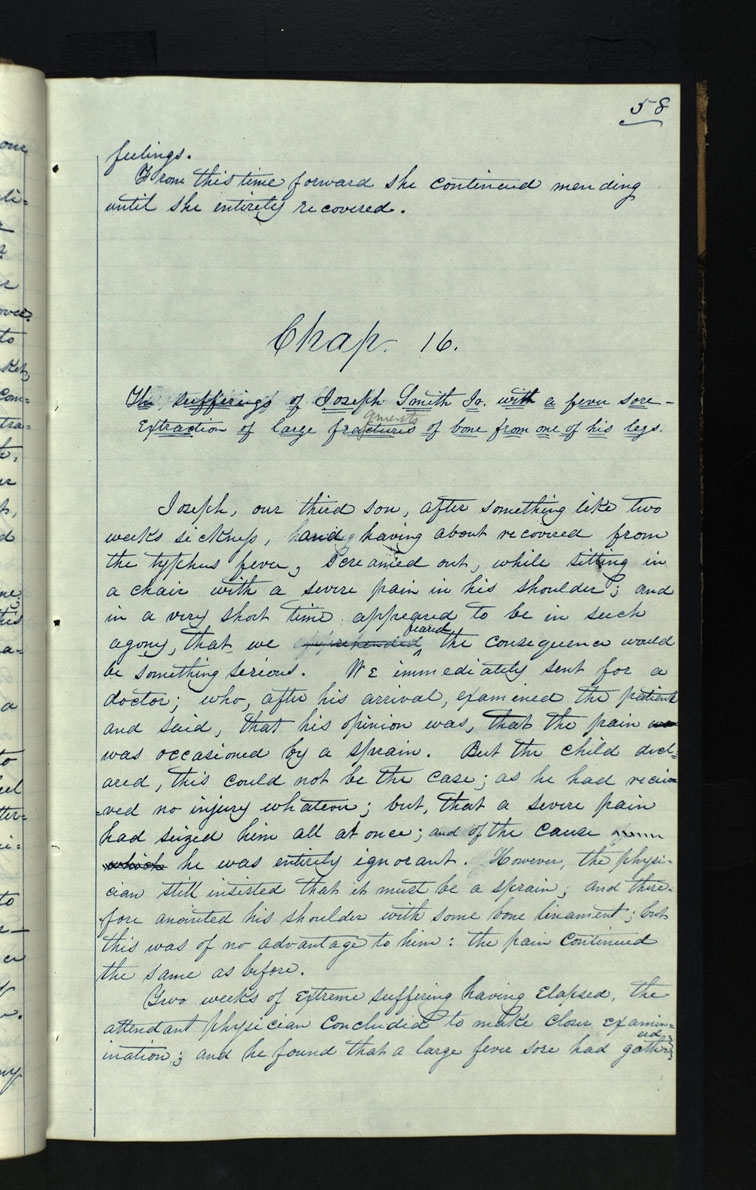 58
feelings.
From this time forward she continued mending
until she entirely recovered.
Chap. 16.
The sufferings of Joseph Smith Jr. with a fever sore -
Extraction of large fractures of bone from one of his legs.
gments
Joseph, our third son, after something like two
weeks sickness, having about recovered from
the typhus fever, screamed out, while sitting in
a chair with a severe pain in his shoulder; and
in a very short time appeared to be in such
agony, that we apprehended feared the consequence would
be something serious. We immediately sent for a
doctor; who, after his arrival, examined the patient
and said, that his opinion was, that the pain
was occasioned by a sprain. But the child decl=
ared, this could not be the case; as he had recie=
ved no injury whatever; but, that a severe pain
had seized him all at once; and of the cause
which he was entirely ignorant. However, the physi-
cian still insisted that it must be a sprain, and there-
fore anointed his shoulder with some bone linament; but
this was of no advantage to him: the pain continued
the same as before.
Two weeks of extreme suffering having elapsed, the
attendant physician concluded to make closer examin=
ination; and he found that a large fever sore had gather=
ed